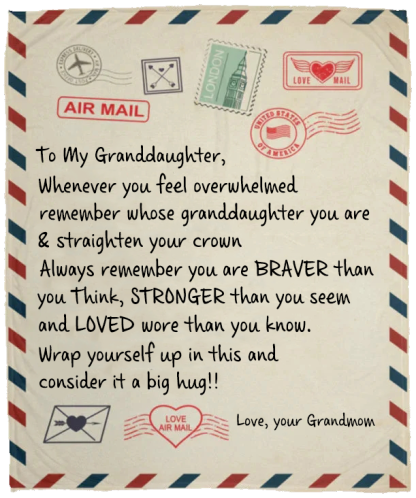 EXPRESS DELIVERY
LONDON
LOVE MAIL
AIR MAIL
UNITED STATES
OF AMERICA
To My Granddaughter,
Whenever you feel overwhelmed
remember whose granddaughter you are
& straighten your crown
Always remember you are BRAVER than
you Think, STRONGER than you seem
and LOVED wore than you know.
Wrap yourself up in this and
consider it a big hug!!
LOVE
AIR MAIL
Love, your Grandmom